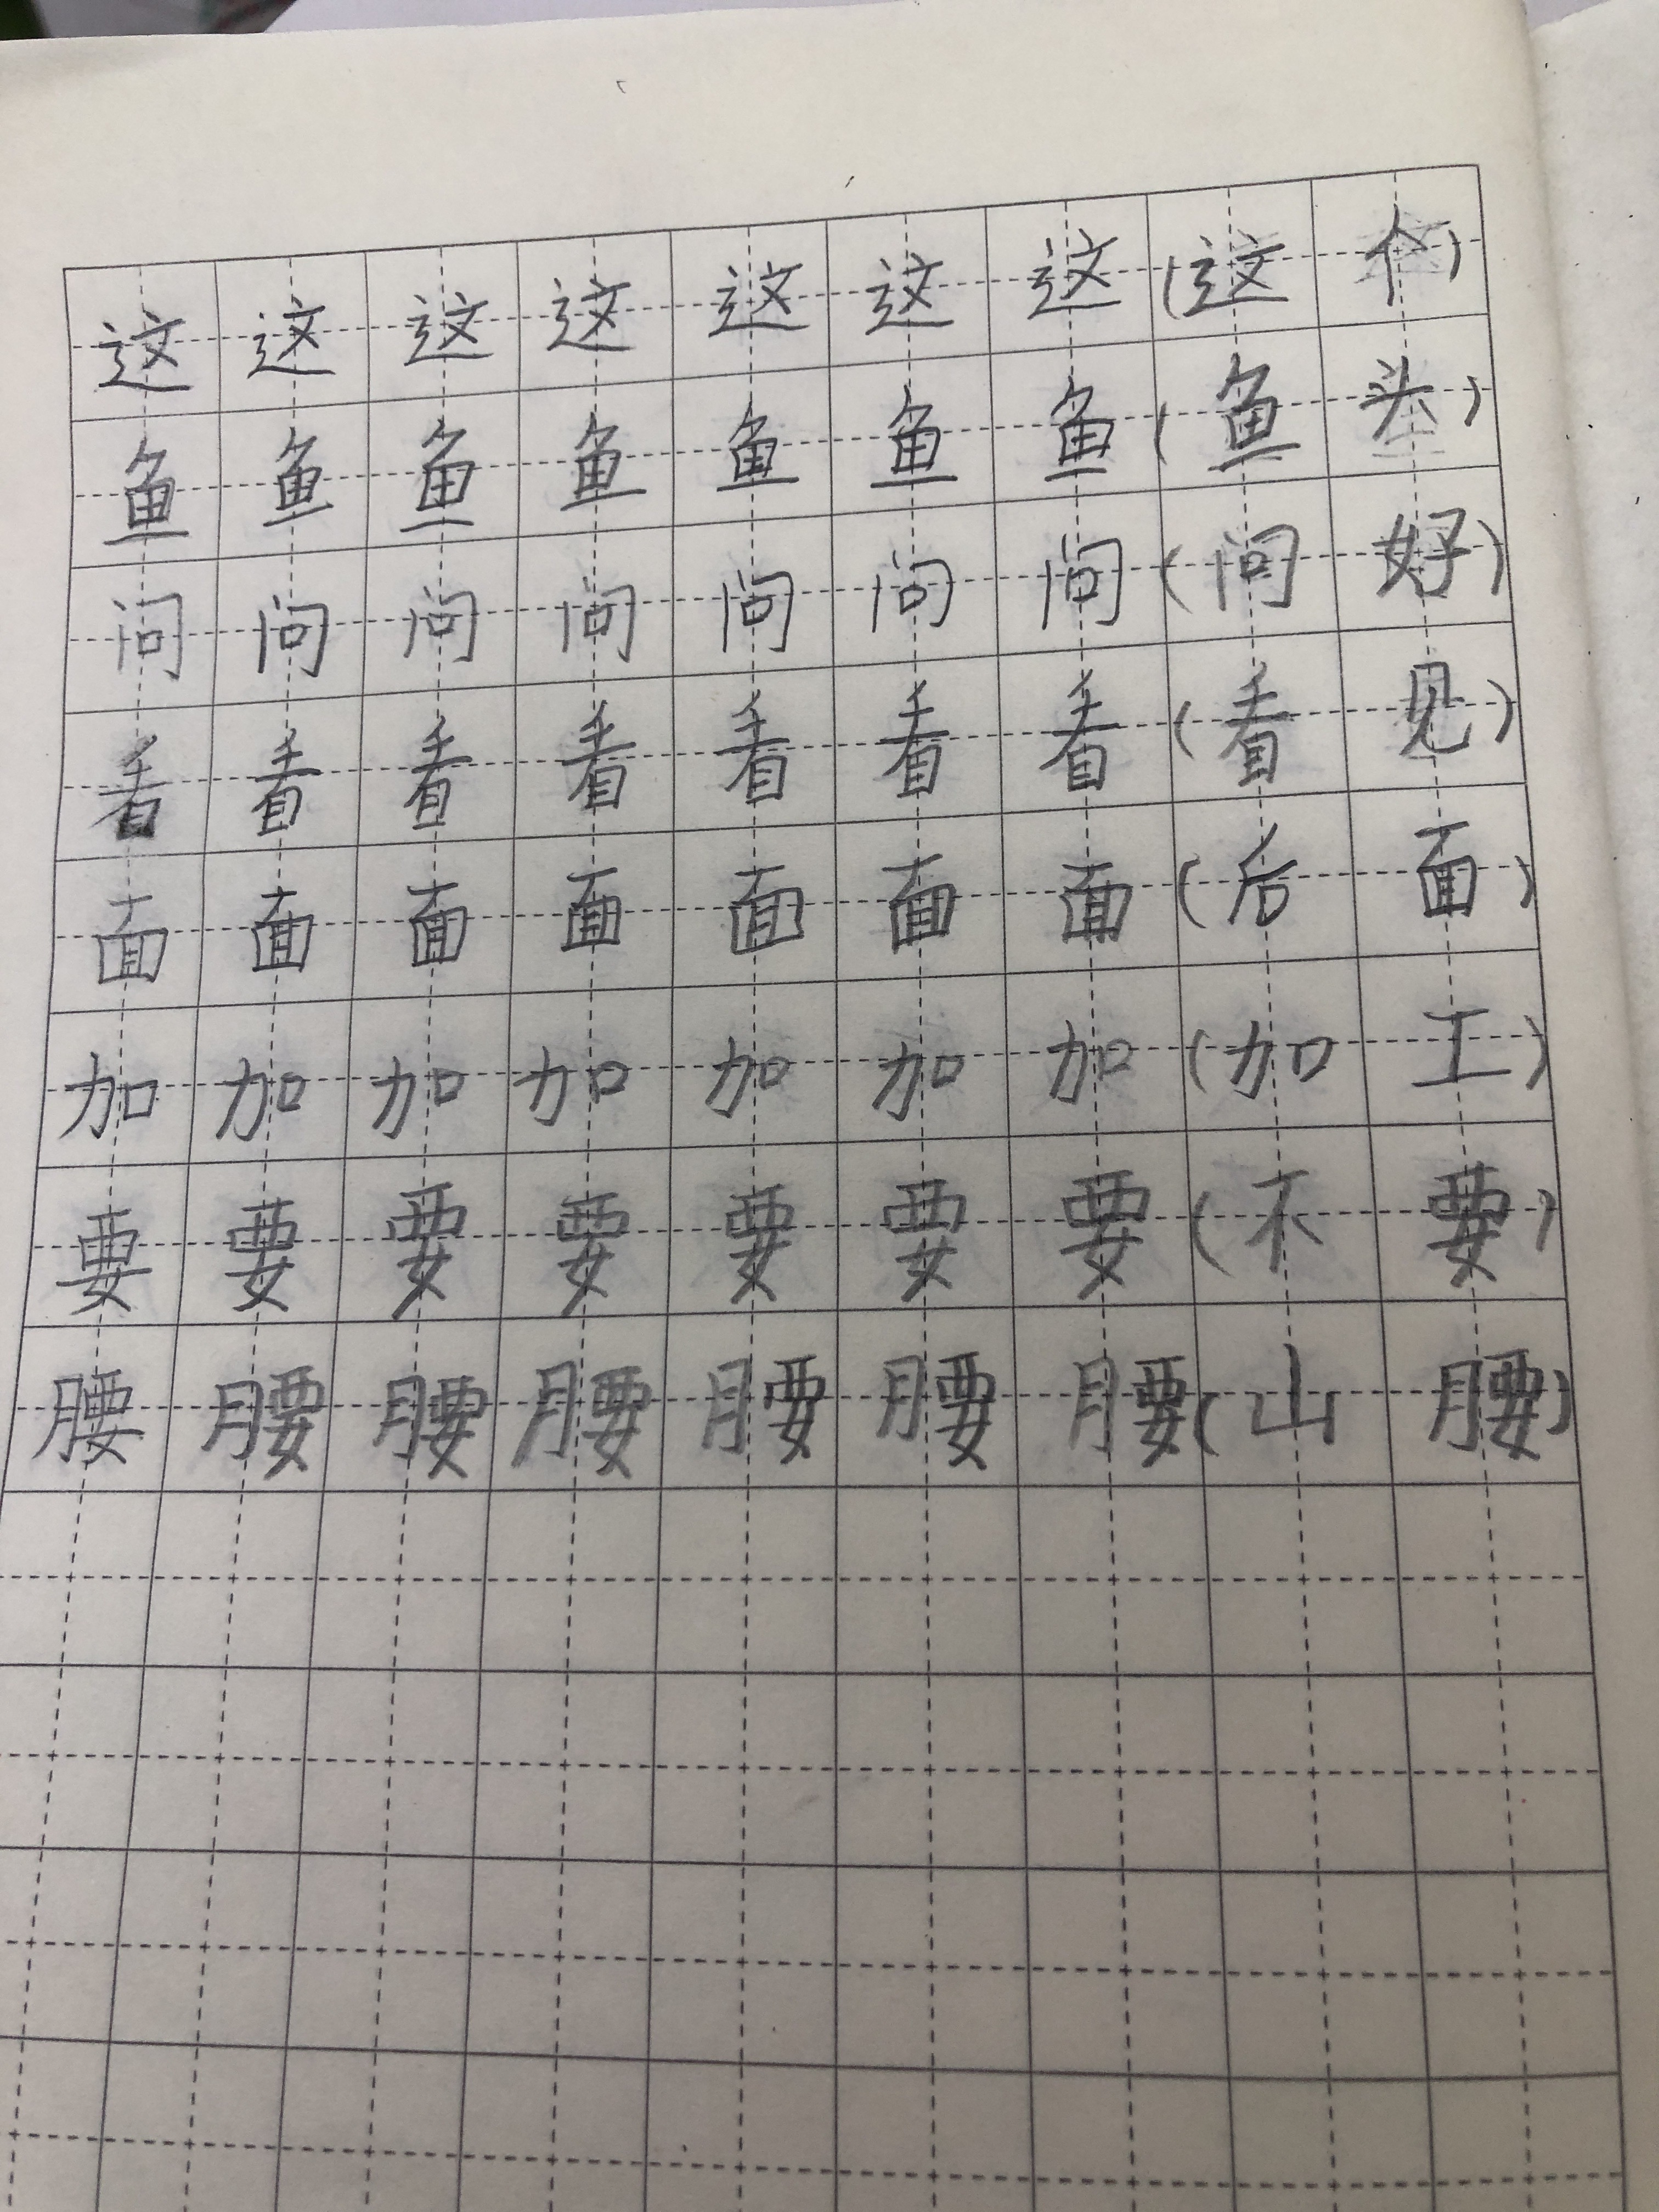 这这这这这这这(这个)
鱼鱼鱼鱼鱼鱼鱼(鱼头)
问问问问问问问(问好)
看看看看看看看(看见)
面面面面面面面(后面)
加加加加加加加(加工)
要要要要要要要(不要)
腰腰腰腰腰腰腰(山腰)